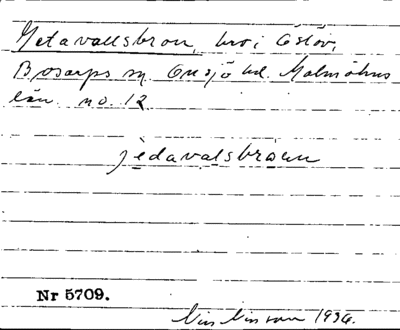 Getavallsbron, bro i Östöv,
Bosarps sn. Onsjö hd. Malmöhus
län. no. 12
jèdavalsbròun
Nr 5709.
1936.